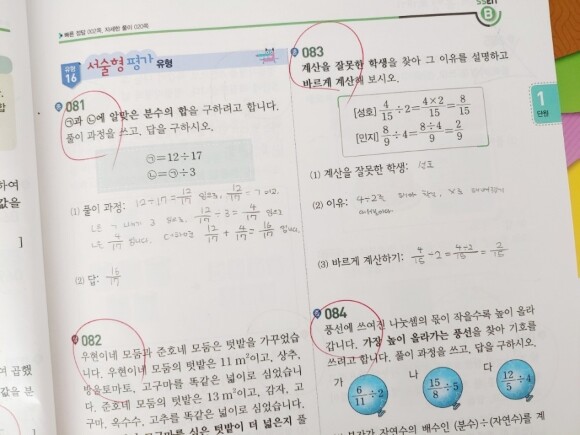 빠른 정답 002쪽, 자세한 풀이 020쪽
SSEN
B
유형 16 서술형 평가 유형
081
㉠과 ㉡에 알맞은 분수의 합을 구하려고 합니다.
풀이 과정을 쓰고, 답을 구하시오.
㉠=12÷17
㉡=㉠÷3
(1) 풀이 과정: 12÷17=12/17
12/17÷3=4/17
12/17+4/17=16/17
(2) 답: 16/17
082
우현이네 모둠과 준호네 모둠은 텃밭을 가꾸었습
니다. 우현이네 모둠의 텃밭은 11 m²이고, 상추,
방울토마토, 고구마를 똑같은 넓이로 심었습니
다. 준호네 모둠의 텃밭은 13 m²이고, 감자, 고
구마, 옥수수, 고추를 똑같은 넓이로 심었습니다.
고구마를 심은 텃밭이 더 넓은지 풀
083
계산을 잘못한 학생을 찾아 그 이유를 설명하고
바르게 계산해 보시오.
[성호] 4/15÷2=4×2/15=8/15
[민지] 8/9÷4=8÷4/9=2/9
(1) 계산을 잘못한 학생: 성호
(2) 이유: 4÷2를
(3) 바르게 계산하기: 4/15÷2=4÷2/15=2/15
084
풍선에 쓰여진 나눗셈의 몫이 작을수록 높이 올라
갑니다. 가장 높이 올라가는 풍선을 찾아 기호를
쓰려고 합니다. 풀이 과정을 쓰고, 답을 구하시오.
가 나 다
6/11÷2 15/8÷5 12/5÷4
분자가 자연수의 배수인 (분수)÷(자연수)를 계
1
단원